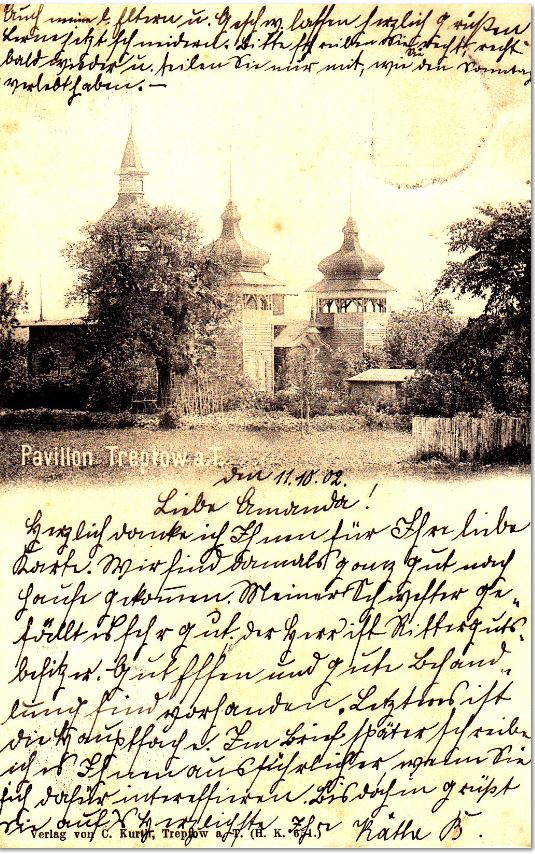 Auch meine l. Eltern u. Geschw. lassen herzlich grüßen
Lerne jetzt schneidern. Bitte schreiben Sie recht, recht
bald wieder u. teilen Sie mir mit, wie den Sonntag
verlebt haben. —
Sie
Pavillon Treptow a.T.
den 11.10.02.
Liebe Amanda!
Herzlich danke ich Ihnen für Ihre liebe
Karte. Wir sind damals ganz gut nach
Hause gekommen. Meiner Schwester ge-
fällt es sehr gut. der Herr ist Ritterguts-
besitzer. Gut Essen und gute Behand-
lung sind vorhanden. Letzteres ist
die Hauptsache. Im Brief später schreibe
ich es Ihnen ausführlicher wenn Sie
sich dafür interessieren. Bis dahin grüßt
Sie aufs Herzlichste Ihre Käthe B.
Verlag von C. Kurth, Treptow a. T. (H. K. 6.1.)